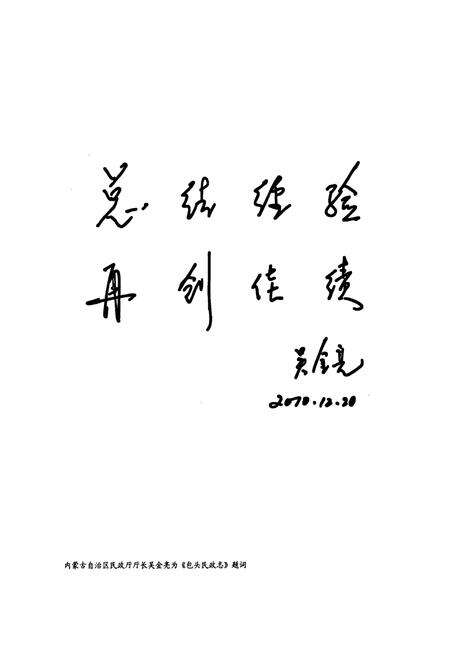 总结经验
再创佳绩
吴金亮
2010.12.20
内蒙古自治区民政厅厅长吴金亮为《包头民政志》题词